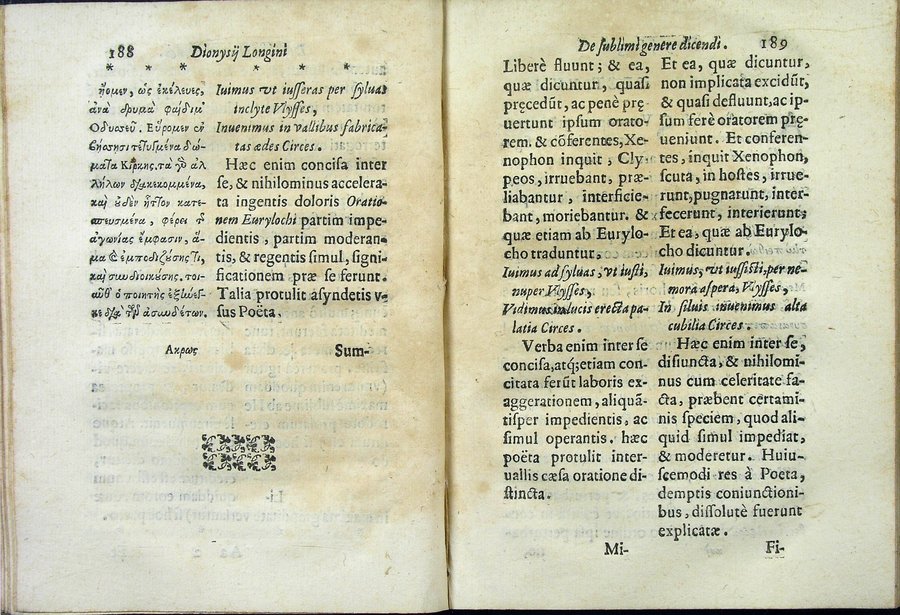 188 Dionysij Longini
* * * * * *
ἤομεν, ὡς ἐκέλευες,
ἀνὰ δρυμὰ φαίδιμ᾽
Ὀδυσσεῦ. Εὕρομεν ἐν
βήσσῃσι τετυγμένα δώ-
ματα Κίρκης. τὰ γὸ ἀλ
λήλων διακεκομμένα,
καὶ ἐδὲν ἧττον κατε-
σπευσμένα, φέρει τ
ἀγωνίας ἔμφασιν, ἅ-
μα ἐμποδιζούσης τι,
καὶ συνδιωκούσης. τοι-
αῦθ ὁ ποιητὴς ἐξήνεγ-
κε διὰ τῶν ἀσυνδέτων.
Ακρως
Iuimus vt iusseras per syluas
inclyte Vlysses,
Inuenimus in vallibus fabrica-
tas ædes Circes.
Hæc enim concisa inter
se, & nihilominus accelera-
ta ingentis doloris Oratio-
nem Eurylochi partim impe-
dientis, partim moderan-
tis, & regentis simul, signi-
ficationem præ se ferunt.
Talia protulit asyndetis v-
sus Poëta.
Sum-
De sublimi genere dicendi. 189
Liberè fluunt; & ea,
quæ dicuntur, quasi
pręcedūt, ac penè prę-
uertunt ipsum orato-
rem. & cōferentes, Xe-
nophon inquit, Cly-
peos, irruebant, præ-
liabantur, interficie-
bant, moriebantur. &
quæ etiam ab Eurylo-
cho traduntur,
Iuimus ad syluas, vt iusti,
nuper Vlysses,
Vidimus in lucis erecta pa-
latia Circes.
Verba enim inter se
concisa, atq; etiam con-
citata ferūt laboris ex-
aggerationem, aliquā-
tisper impedientis, ac
simul operantis. hæc
poëta protulit inter-
uallis cæsa oratione di-
stincta.
Mi-
Et ea, quæ dicuntur,
non implicata excidūt,
& quasi defluunt, ac ip-
sum ferè oratorem prę-
ueniunt. Et conferen-
tes, inquit Xenophon,
scuta, in hostes, irrue-
runt, pugnarunt, inter-
fecerunt, interierunt;
Et ea, quæ ab Eurylo-
cho dicuntur.
Iuimus, vt iussisti, per ne-
mora aspera, Vlysses,
In siluis inuenimus alta
cubilia Circes.
Hæc enim inter se,
disiuncta, & nihilomi-
nus cum celeritate fa-
cta, præbent certami-
nis speciem, quod ali-
quid simul impediat,
& moderetur. Huiu-
scemodi res à Poeta,
demptis coniunctioni-
bus, dissolutè fuerunt
explicatæ.
Fi-